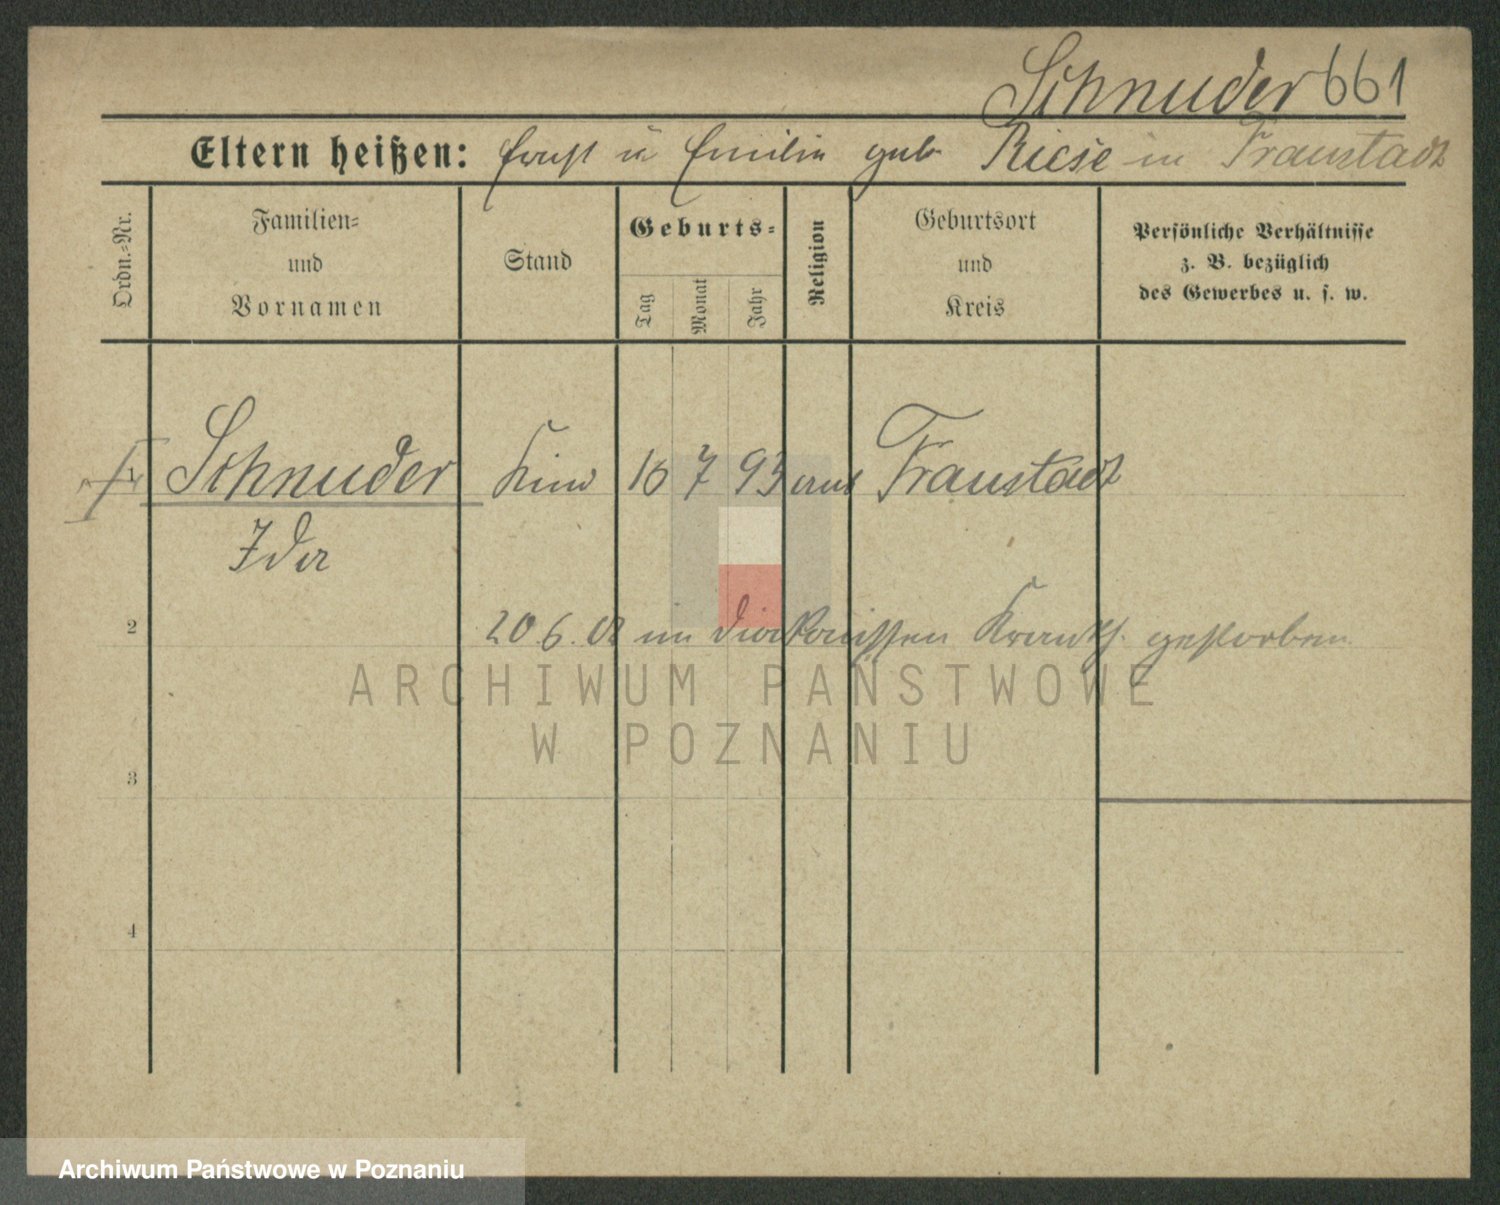 Schnuder 661
Eltern heißen: Ernst u Emilie geb Riese in Fraustadt
Ordn.=Nr.
Familien=
und
Vornamen
Stand
Geburts=
Tag
Monat
Jahr
Religion
Geburtsort
und
Kreis
Persönliche Verhältnisse
z. B. bezüglich
des Gewerbes u. s. w.
1 Schnuder Kind 16 7 93 Fraustadt
Ida
2 20 6. 02 im Diakonissen Krankh. gestorben
ARCHIWUM PAŃSTWOWE
W POZNANIU
3
4
Archiwum Państwowe w Poznaniu